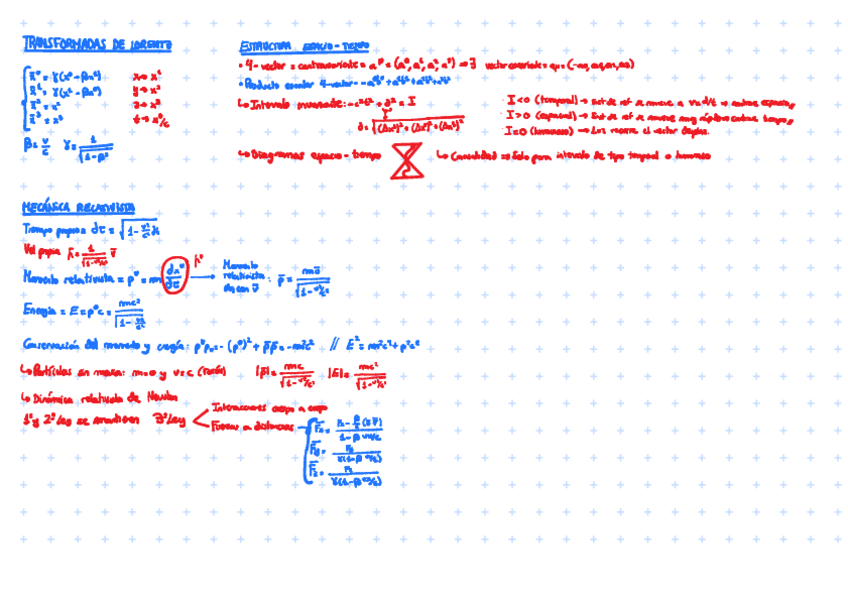 TRANSFORMADAS DE LORENTZ
x̄⁰ = γ(x⁰ - βx¹)
x̄¹ = γ(x¹ - βx⁰)
x̄² = x²
x̄³ = x³
x → x¹
y → x²
z → x³
t → x⁰/c
β = v/c γ = 1/√(1-β²)
ESTRUCTURA ESPACIO-TIEMPO
• 4-vector = contravariante = a^μ = (a⁰, a¹, a², a³) → ∃ vector covariante = aμ = (-a₀, a₁, a₂, a₃)
• Producto escalar 4-vector =
↳ Intervalo invariante: -c²t² + d² = I
d = √((Δx¹)² + (Δx²)² + (Δx³)²)
I<0 (temporal) →
I>0 (espacial) →
I=0 (luminoso) →
↳ Diagramas espacio-tiempo
↳ Causalidad ⇒ Sólo para intervalo de tipo temporal o luminoso
MECÁNICA RELATIVISTA
Tiempo propio = dτ = √(1 - v²/c²) dt
Vel propia η̄ = 1/√(1-v²/c²) v̄
Momento relativista = p^μ = m dx^μ/dτ → Momento relativista p̄ = mv̄/√(1-v²/c²)
Energía = E = p⁰c = mc²/√(1-v²/c²)
Conservación del momento y energía: p^μ pμ = -(p⁰)² + p̄p̄ = -m²c² // E² = m²c⁴ + p²c²
↳ Partículas sin masa: m=0 y v=c (fotón) |p̄| = mc/√(1-v²/c²) |E| = mc²/√(1-v²/c²)
↳ Dinámica relativista de Newton
1ª y 2ª Ley se mantienen 3ª Ley
Interacciones cuerpo a cuerpo
Fuerzas a distancias